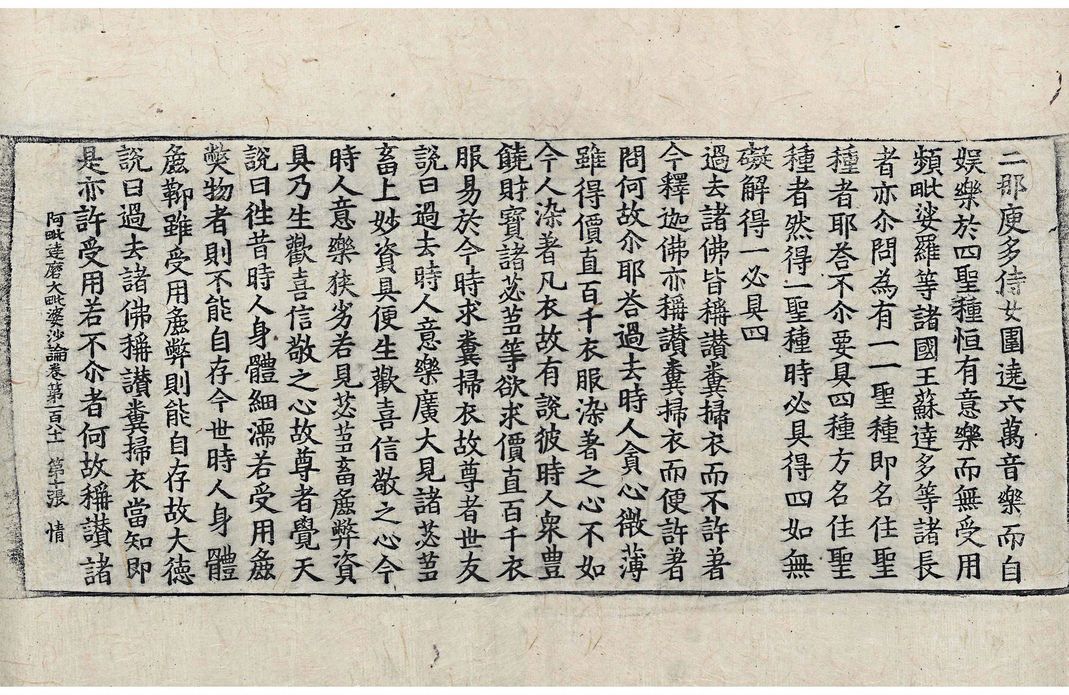 二那庾多侍女圍遶六萬音樂而自
娛樂於四聖種恒有意樂而無受用
頻毗娑羅等諸國王蘇達多等諸長
者亦尒問為有一一聖種即名住聖
種者耶荅不尒要具四種方名住聖
種者然得一聖種時必具得四如無
礙解得一必具四
過去諸佛皆稱讃糞掃衣而不許著
今釋迦佛亦稱讃糞掃衣而便許著
問何故尒耶荅過去時人貪心微薄
雖得價直百千衣服染著之心不如
今人染著凡衣故有說彼時人衆豊
饒財寳諸苾芻等欲求價直百千衣
服易於今時求糞掃衣故尊者世友
說曰過去時人意樂廣大見諸苾芻
畜上妙資具便生歡喜信敬之心今
時人意樂狹劣若見苾芻畜麁弊資
具乃生歡喜信敬之心故尊者覺天
說曰徃昔時人身體細濡若受用麁
獘物者則不能自存今世時人身體
麁鞕雖受用麁弊則能自存故大德
說曰過去諸佛稱讃糞掃衣當知即
是亦許受用若不尒者何故稱讃諸
阿毗達磨大毗婆沙論卷第一百八十一 第十張 情